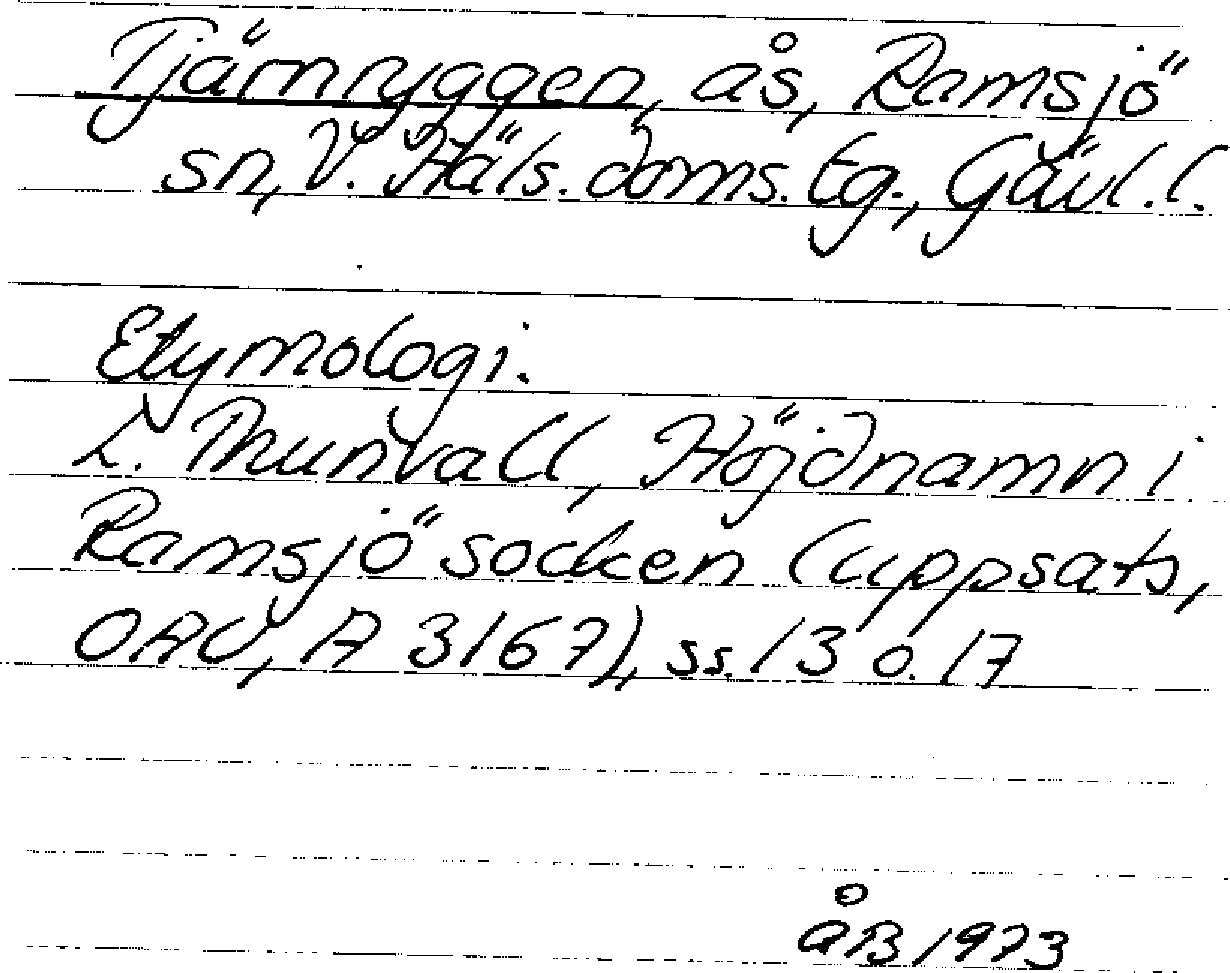 Tjärnryggen, ås, Ramsjö
sn, V. Häls. doms. tg., Gävl. l.
Etymologi.
L. Thunvall, Höjdnamn i
Ramsjö socken (uppsats,
OAU, A 3167), ss. 13 o. 17
ÅB 1973